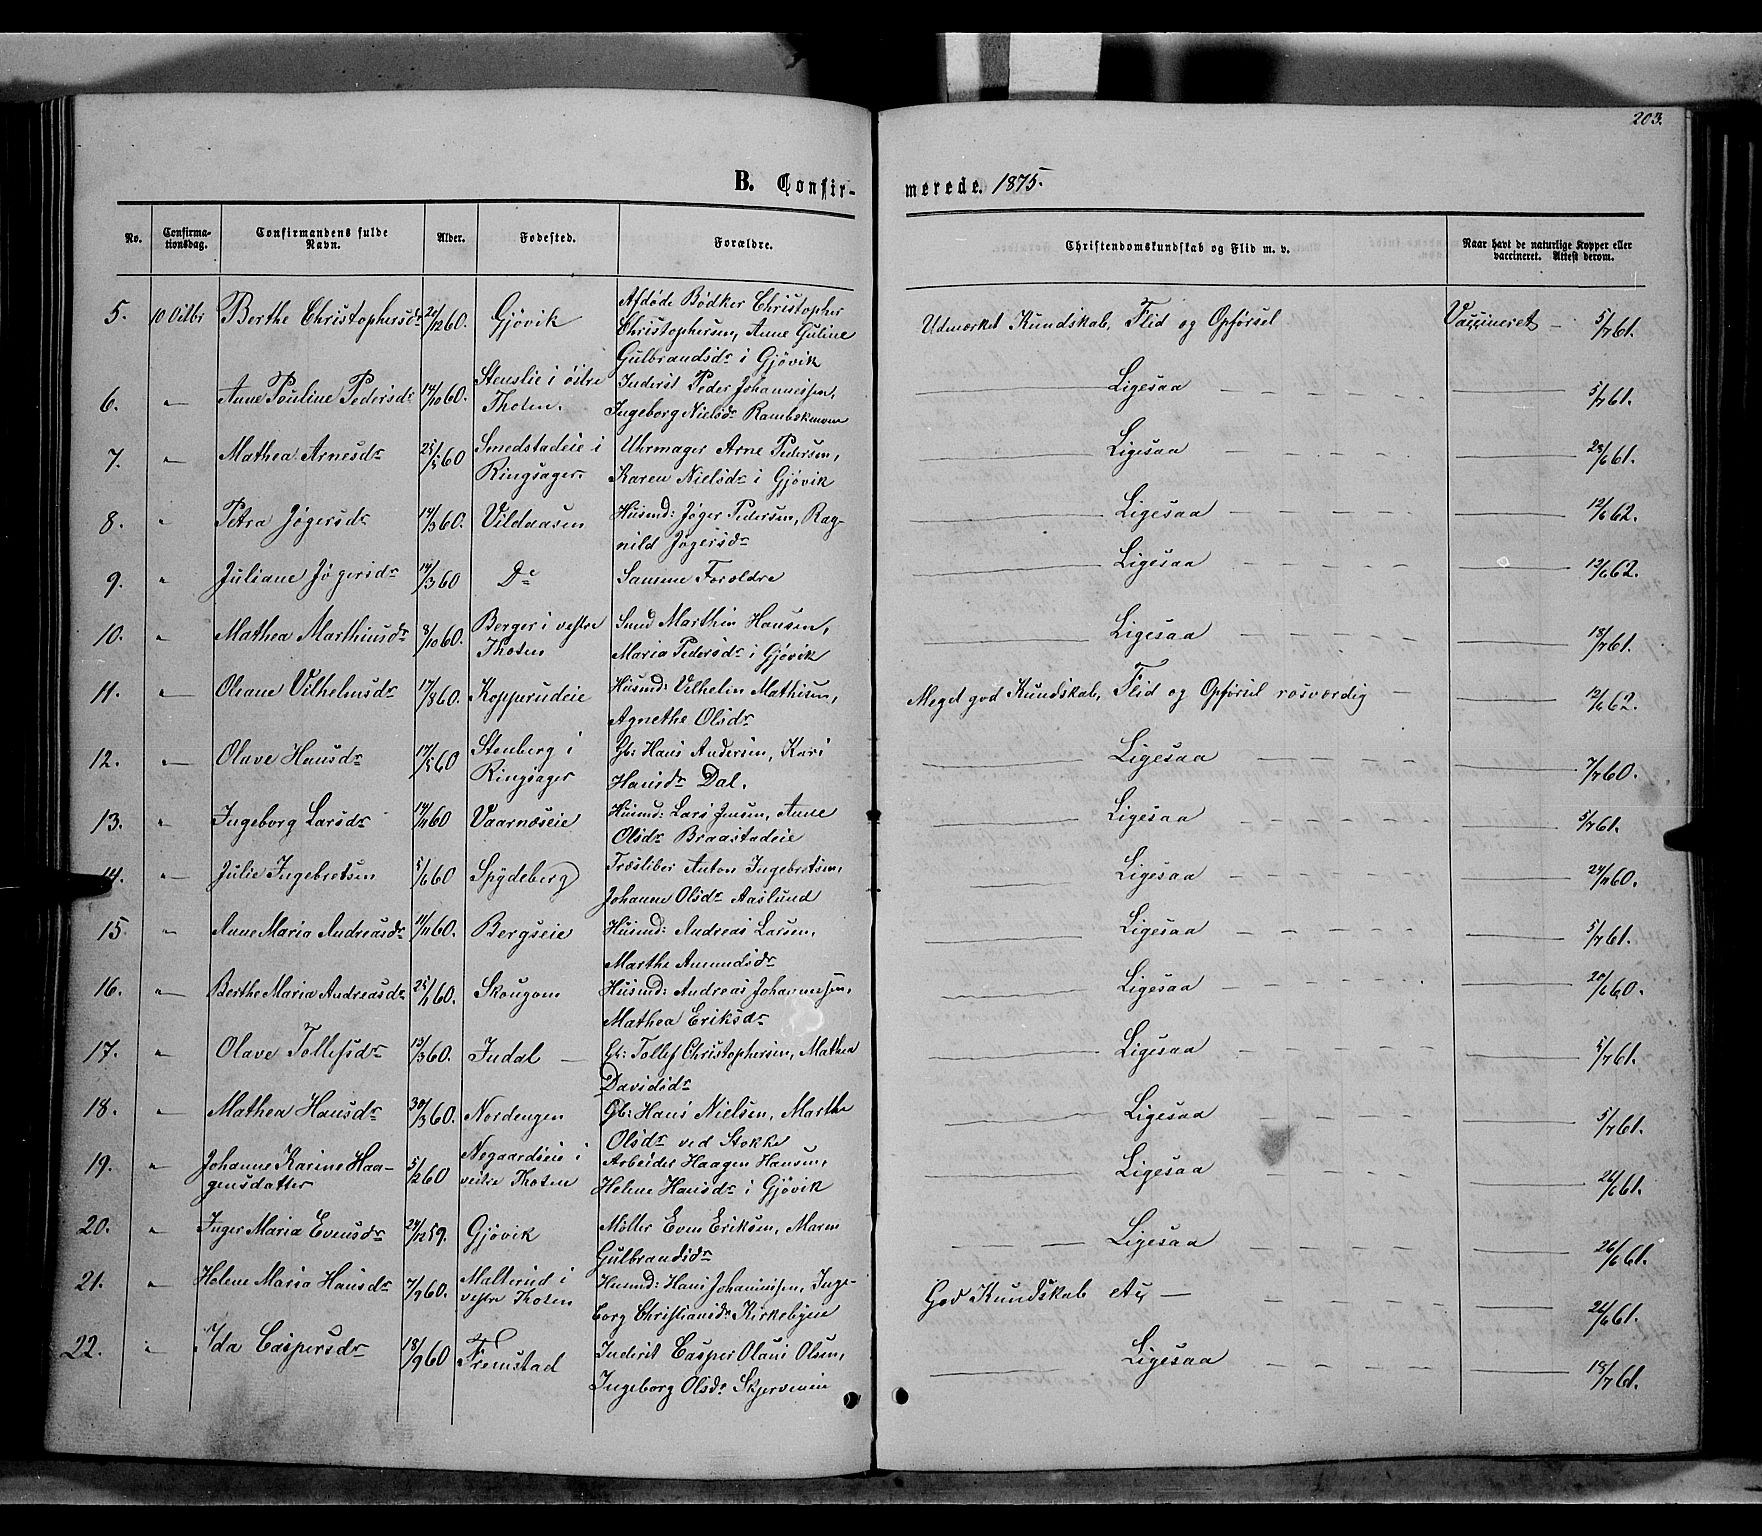 203.
B. Confir-
merede. 1875.
No.
Confirma-
tionsdag.
Confirmandens fulde
Navn.
Alder.
Fødested.
Forældre.
Christendomskundskab og Flid m. v.
Naar havt de naturlige Kopper eller
vaccineret. Attest derom.
5. 10 Octbr Berthe Christophersdr 21/12 60. Gjøvik Afdøde Bødker Christopher
Christophersen, Anne Guline
Gulbrandsdr i Gjøvik
Udmærket Kundskab, Flid og Opførsel Vaccineret – 5/7 61.
6. " Anne Pouline Pedersdr 14/10 60. Stenslie i østre
Thoten. Inderst Peder Johannessen,
Ingeborg Nielsdr
Ligesaa 5/7 61.
7. " Mathea Arnesdr 25/5 60 Smedstadeie i
Ringsager Uhrmager Arne Pedersen,
Karen Nielsdr i Gjøvik
Ligesaa 28/6 61.
8. " Petra Jøgersdr 14/3 60. Vildaasen Husmd: Jøger Pedersen, Rag-
nild Jøgersdr
Ligesaa 12/6 62.
9. " Juliane Jøgersdr 14/3 60 Do Samme Foroldre
Ligesaa 12/6 62.
10. " Mathea Marthinsdr 8/10 60. Berger i vestre
Thoten Smed Marthin Hansen,
Maria Pedersdr i Gjøvik
Ligesaa 18/7 61.
11. " Oleane Vilhelmsdr 17/8 60. Kopperudeie Husmd: Vilhelm Mathisen,
Agnethe Olsdr
Meget god Kundskab, Flid og Opførsel rosværdig – 12/6 62.
12. " Olave Hansdr 17/5 60 Stenberg i
Ringsager Gb: Hans Andersen, Kari
Hansdr Dal.
Ligesaa 7/7 60.
13. " Ingeborg Larsdr 14/11 60 Vaarnæseie Husmd: Lars Jensen, Anne
Olsdr Braastadeie
Ligesaa 5/7 61.
14. " Julie Ingebretsen 5/6 60 Spydeberg Træsliber Anton Ingebretsen,
Johanne Olsdr Aaslund
Ligesaa 24/11 60.
15. " Anne Maria Andreasdr 11/11 60. Bergseie Husmd: Andreas Larsen,
Marthe Amundsdr
Ligesaa 5/7 61.
16. " Berthe Maria Andreasdr 25/1 60. Skougom Husmd: Andreas Johannessen,
Mathea Eriksdr
Ligesaa 20/6 60.
17. " Olave Tollefsdr 13/3 60. Indal – Gb: Tollef Christophersen, Mathea
Davidsdr
Ligesaa 5/7 61.
18. " Mathea Hansdr 30/3 60. Nordengen Gb: Hans Nielsen, Marthe
Olsdr ved Stokke
Ligesaa 5/7 61.
19. " Johanne Karine Haa-
gensdatter 5/2 60 Negaardseie i
vestre Thoten Arbeider Haagen Hansen,
Helene Hansdr i Gjøvik
Ligesaa 26/6 61.
20. " Inger Maria Evensdr 24/12 59. Gjøvik Møller Even Eriksen, Maren
Gulbrandsdr
Ligesaa 26/6 61.
21. " Helene Maria Hansdr 7/9 60. Malterud i
vestre Thoten Husmd: Hans Johannessen, Inge-
borg Christiansdr Kirkebyeie
God Kundskab etc – 26/6 61.
22. " Ida Caspersdr 18/9 60 Fremstad Inderst Casper Olaus Olsen,
Ingeborg Olsdr
Ligesaa 18/7 61.